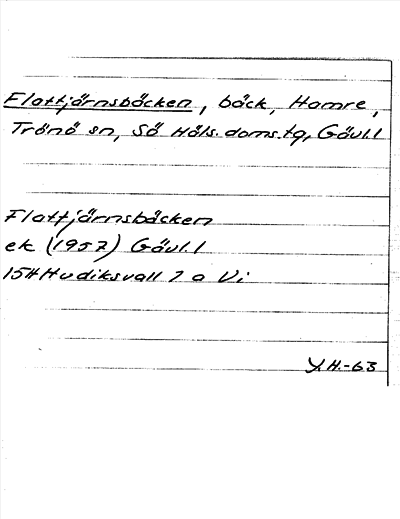 Flattjärnsbäcken, bäck, Hamre,
Trönö sn, Sö Häls. doms.tg, Gävl.l
Flattjärnsbäcken
ek (1957) Gävl.l
15H Hudiksvall 7 a Vi
Y.H.-63